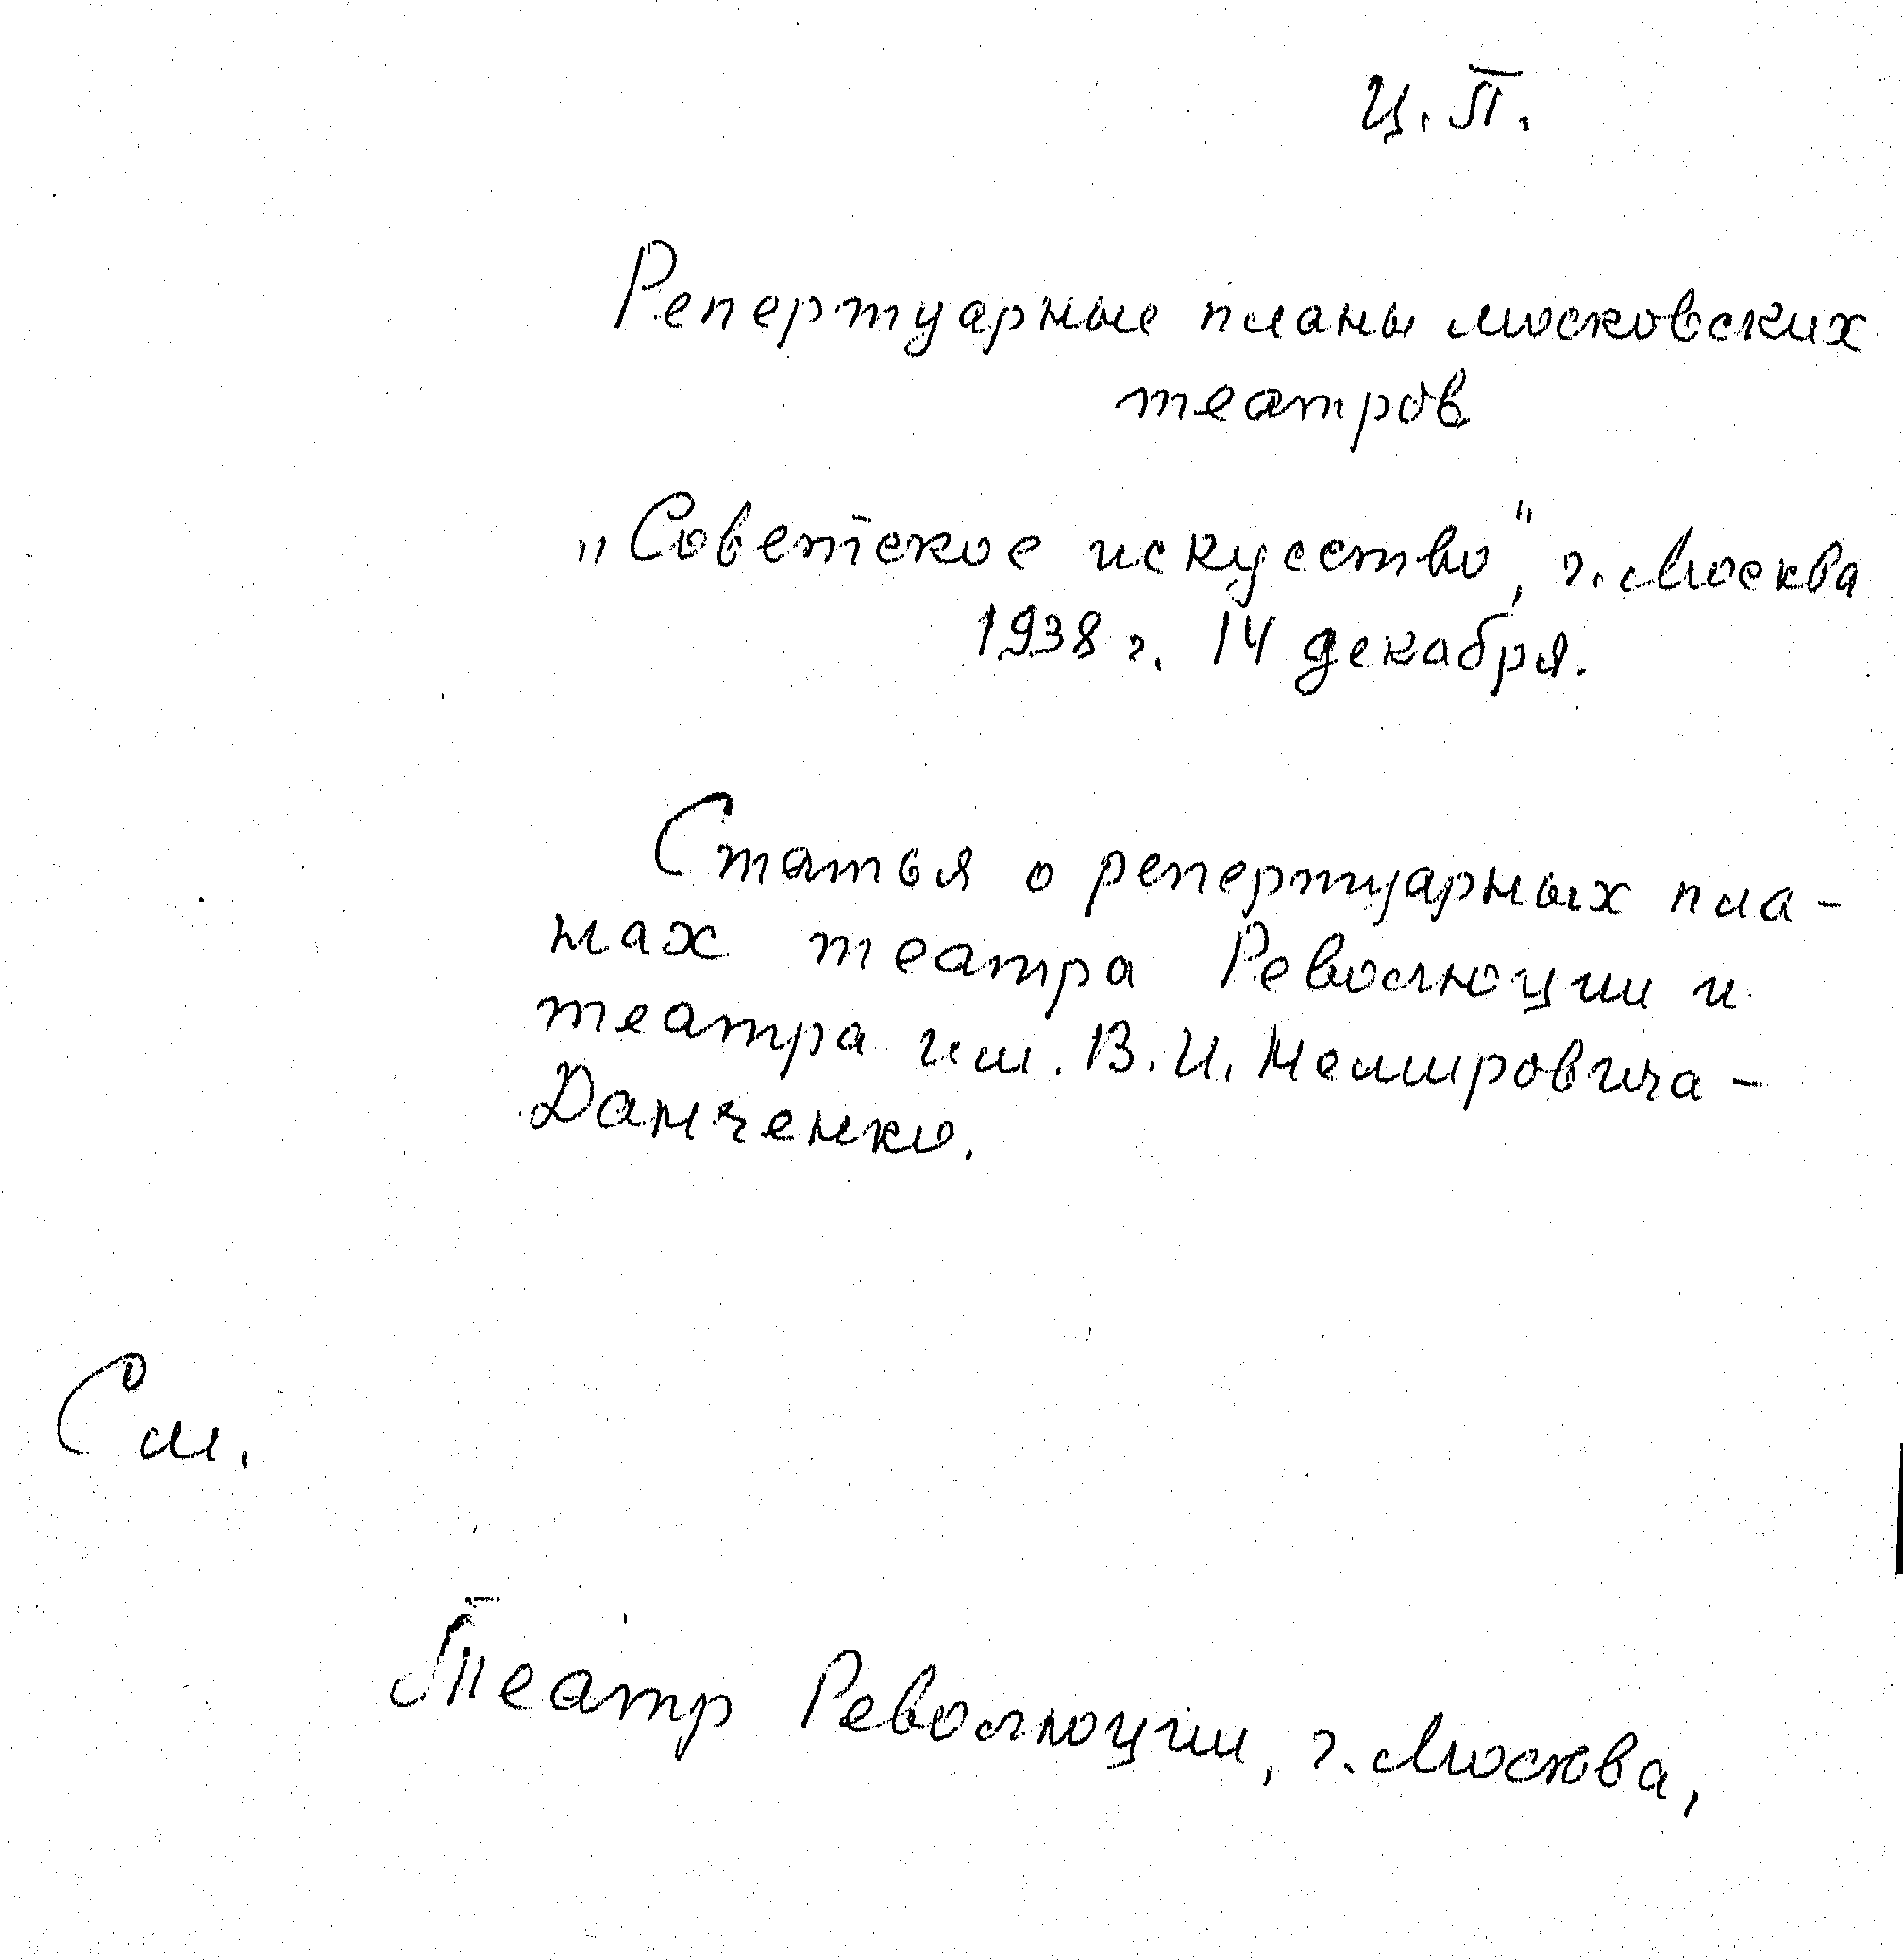 Ц.П.
Репертуарные планы московских
театров
„Советское искусство", г. Москва
1938 г. 14 декабря.
Статья о репертуарных пла-
нах театра Революции и
театра им. В.И. Немировича-
Данченко.
См.
Театр Революции, г. Москва,